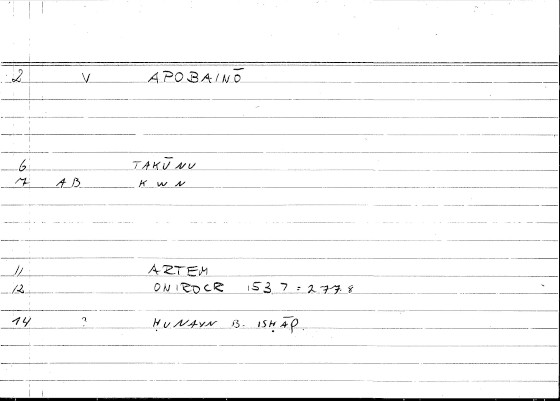 2 V APOBAINŌ
6 TAKŪNU
7 AB K W N
11 ARTEM
12 ONIROCR 153 7 = 277 8
14 ? ḤUNAYN B. ISḤĀQ.